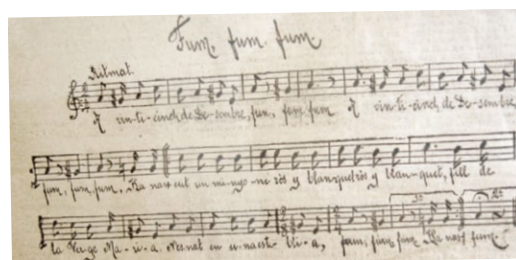 Fum, fum, fum
Ritmat.
A vin-ti-cinch de De-sembre, fum, fum fum A vin-ti-cinch de De-sembre,
fum, fum, fum, Ha nascut un mi-nyo-ne ròs y blanquet ròs y blan-quet, fill de
la Verge Ma-ri-a, nes nat en u-na esta-bli-a, fum, fum fum Ha nasc fum.